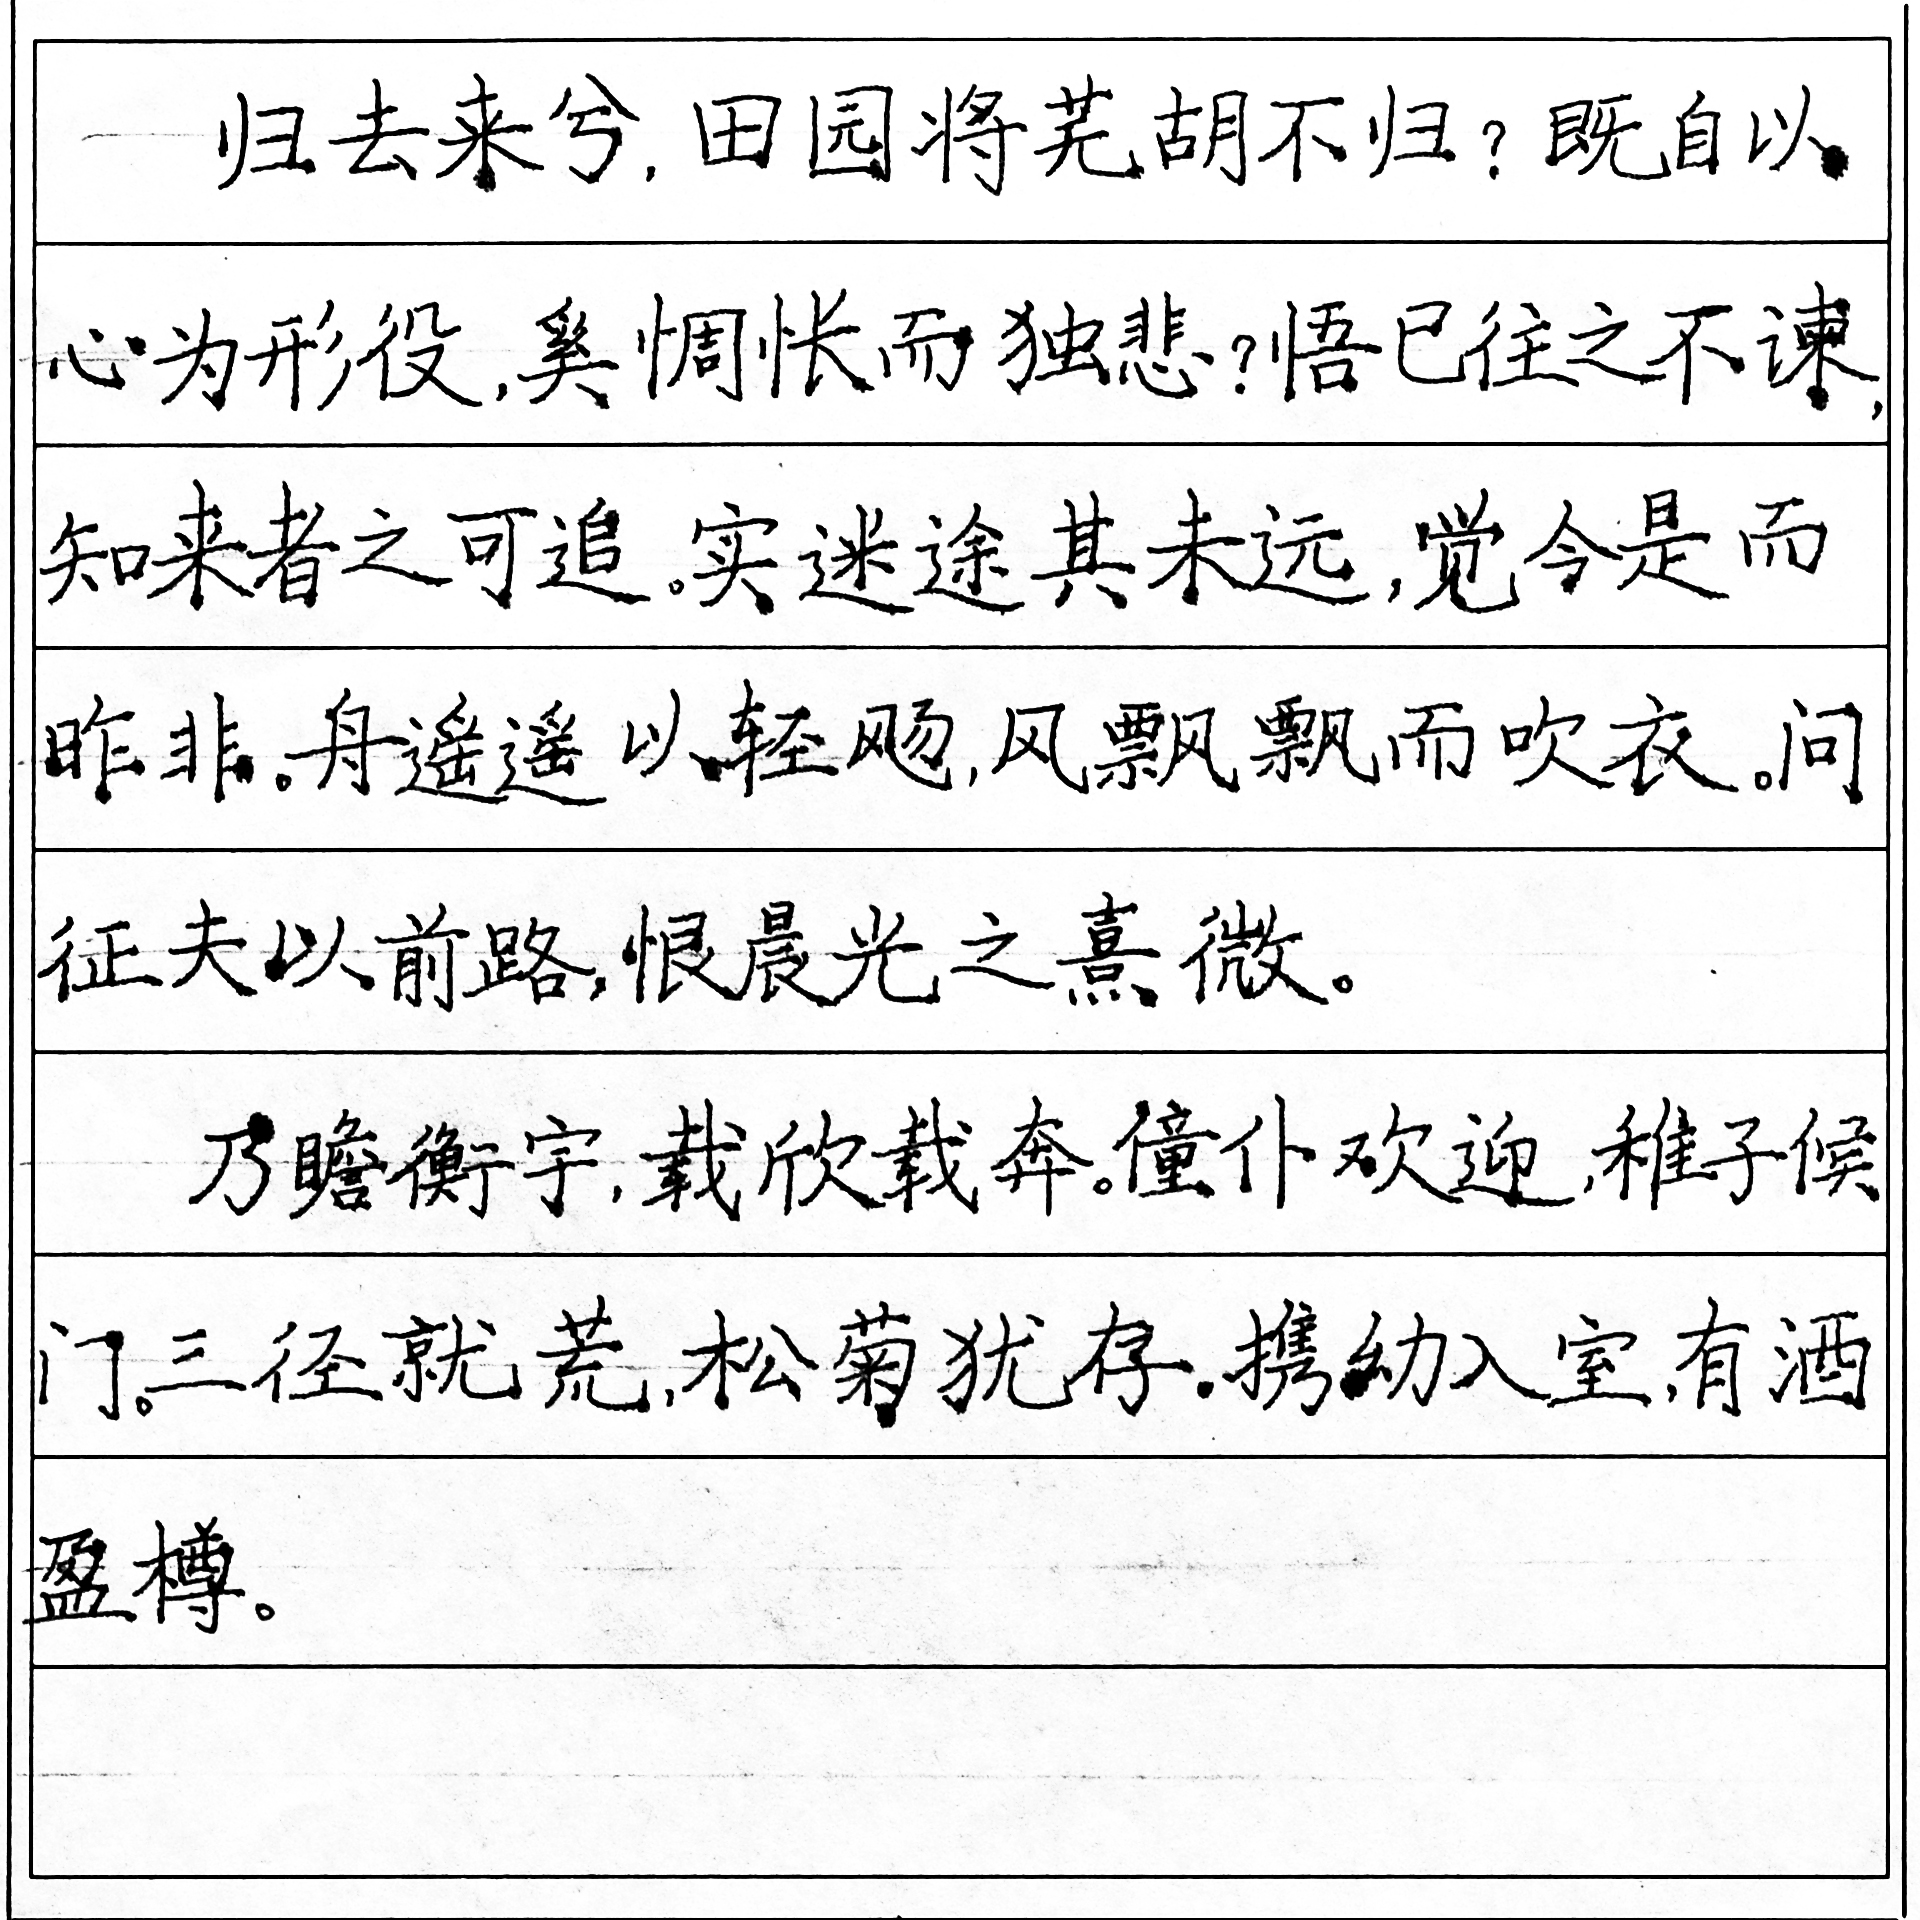 归去来兮，田园将芜胡不归？既自以
心为形役，奚惆怅而独悲？悟已往之不谏，
知来者之可追。实迷途其未远，觉今是而
昨非。舟遥遥以轻飏，风飘飘而吹衣。问
征夫以前路，恨晨光之熹微。
乃瞻衡宇，载欣载奔。僮仆欢迎，稚子候
门。三径就荒，松菊犹存。携幼入室，有酒
盈樽。